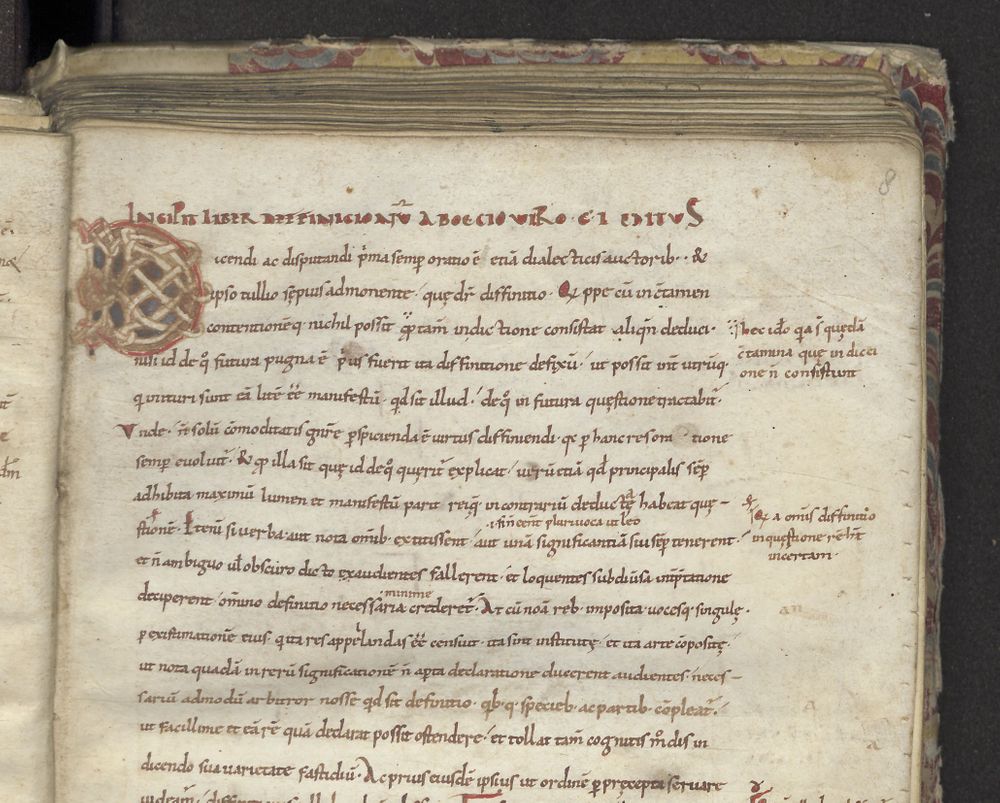 8
INCIPIT LIBER DEFFINICIONŨ A BOECIO VIRO · C̄ I EDITUS
Dicendi ac disputandi p̓ma semp oratio ē etiā dialecticis auctorib·· &
ipso tullio sępius admonente · quę dr̄ diffinitio · Q̨ ppe cū in c̄tamen
contentionēq· nichil possit q̄ tam in dictione consistat aliqn̄ deduci ·
nisi id de q° futura pugna ē p̓us fuerit ita diffinitione defixū · ut possit int̄ utrūq·
qui uituri sunt tā litē ēē manifestū · qd sit illud · de q° in futura quęstione tractabit̄ ·
Vnde · n̄ solū cōmoditatis gn̄re pspicienda ē uirtus diffiniendi · qc p hanc res ora tione
semp euoluit̄ · & qp illa sit quę id de q° quęrit̄ explicat · uerū etiā qd principalis sęp
adhibita maximū lumen et manifestū parit reiq· in contrariū deductę habeat quę-
stionē · Itenī si uerba aut nota omīb· extitissent · aut unā significantiā sui sēp tenerent ·
et n̄ ambiguo ul̄ obscuro dicto exaudientes fallerent · et loquentes sub diuisa int̄ptatione
deciperent · om̄ino definitio necessaria crederet̄ · At cū noā reb· imposita uocesq· singulę ·
p existimationē eius · q ita res appellandas ēē censuit · ita sint institutę · et ita arte cōpositę ·
ut nota quadā in rerū significationē n̄ apta declaratione ducerent audientes · neces-
sariū admodū arbitror nosse qd sit definitio · qb· q· specieb· ac partib· cōpleat̄ ·
ut facillime et eā rē quā declarat possit ostendere · et tollat tam̄ cognitis m̓dis in
dicendo sua uarietate fastidiū · Ac prius eiusdē ipsius ut ordinē p pręcepta seruare
·i· si n̄ eent pluriuoca ut leo
minime
hęc id̓o q̇a s̄ quędā
c̄tamina quę in dicti
one n̄ consistunt
Q̨ a om̄is diffinitio
in quęstione rē hn̄t
incertam ·